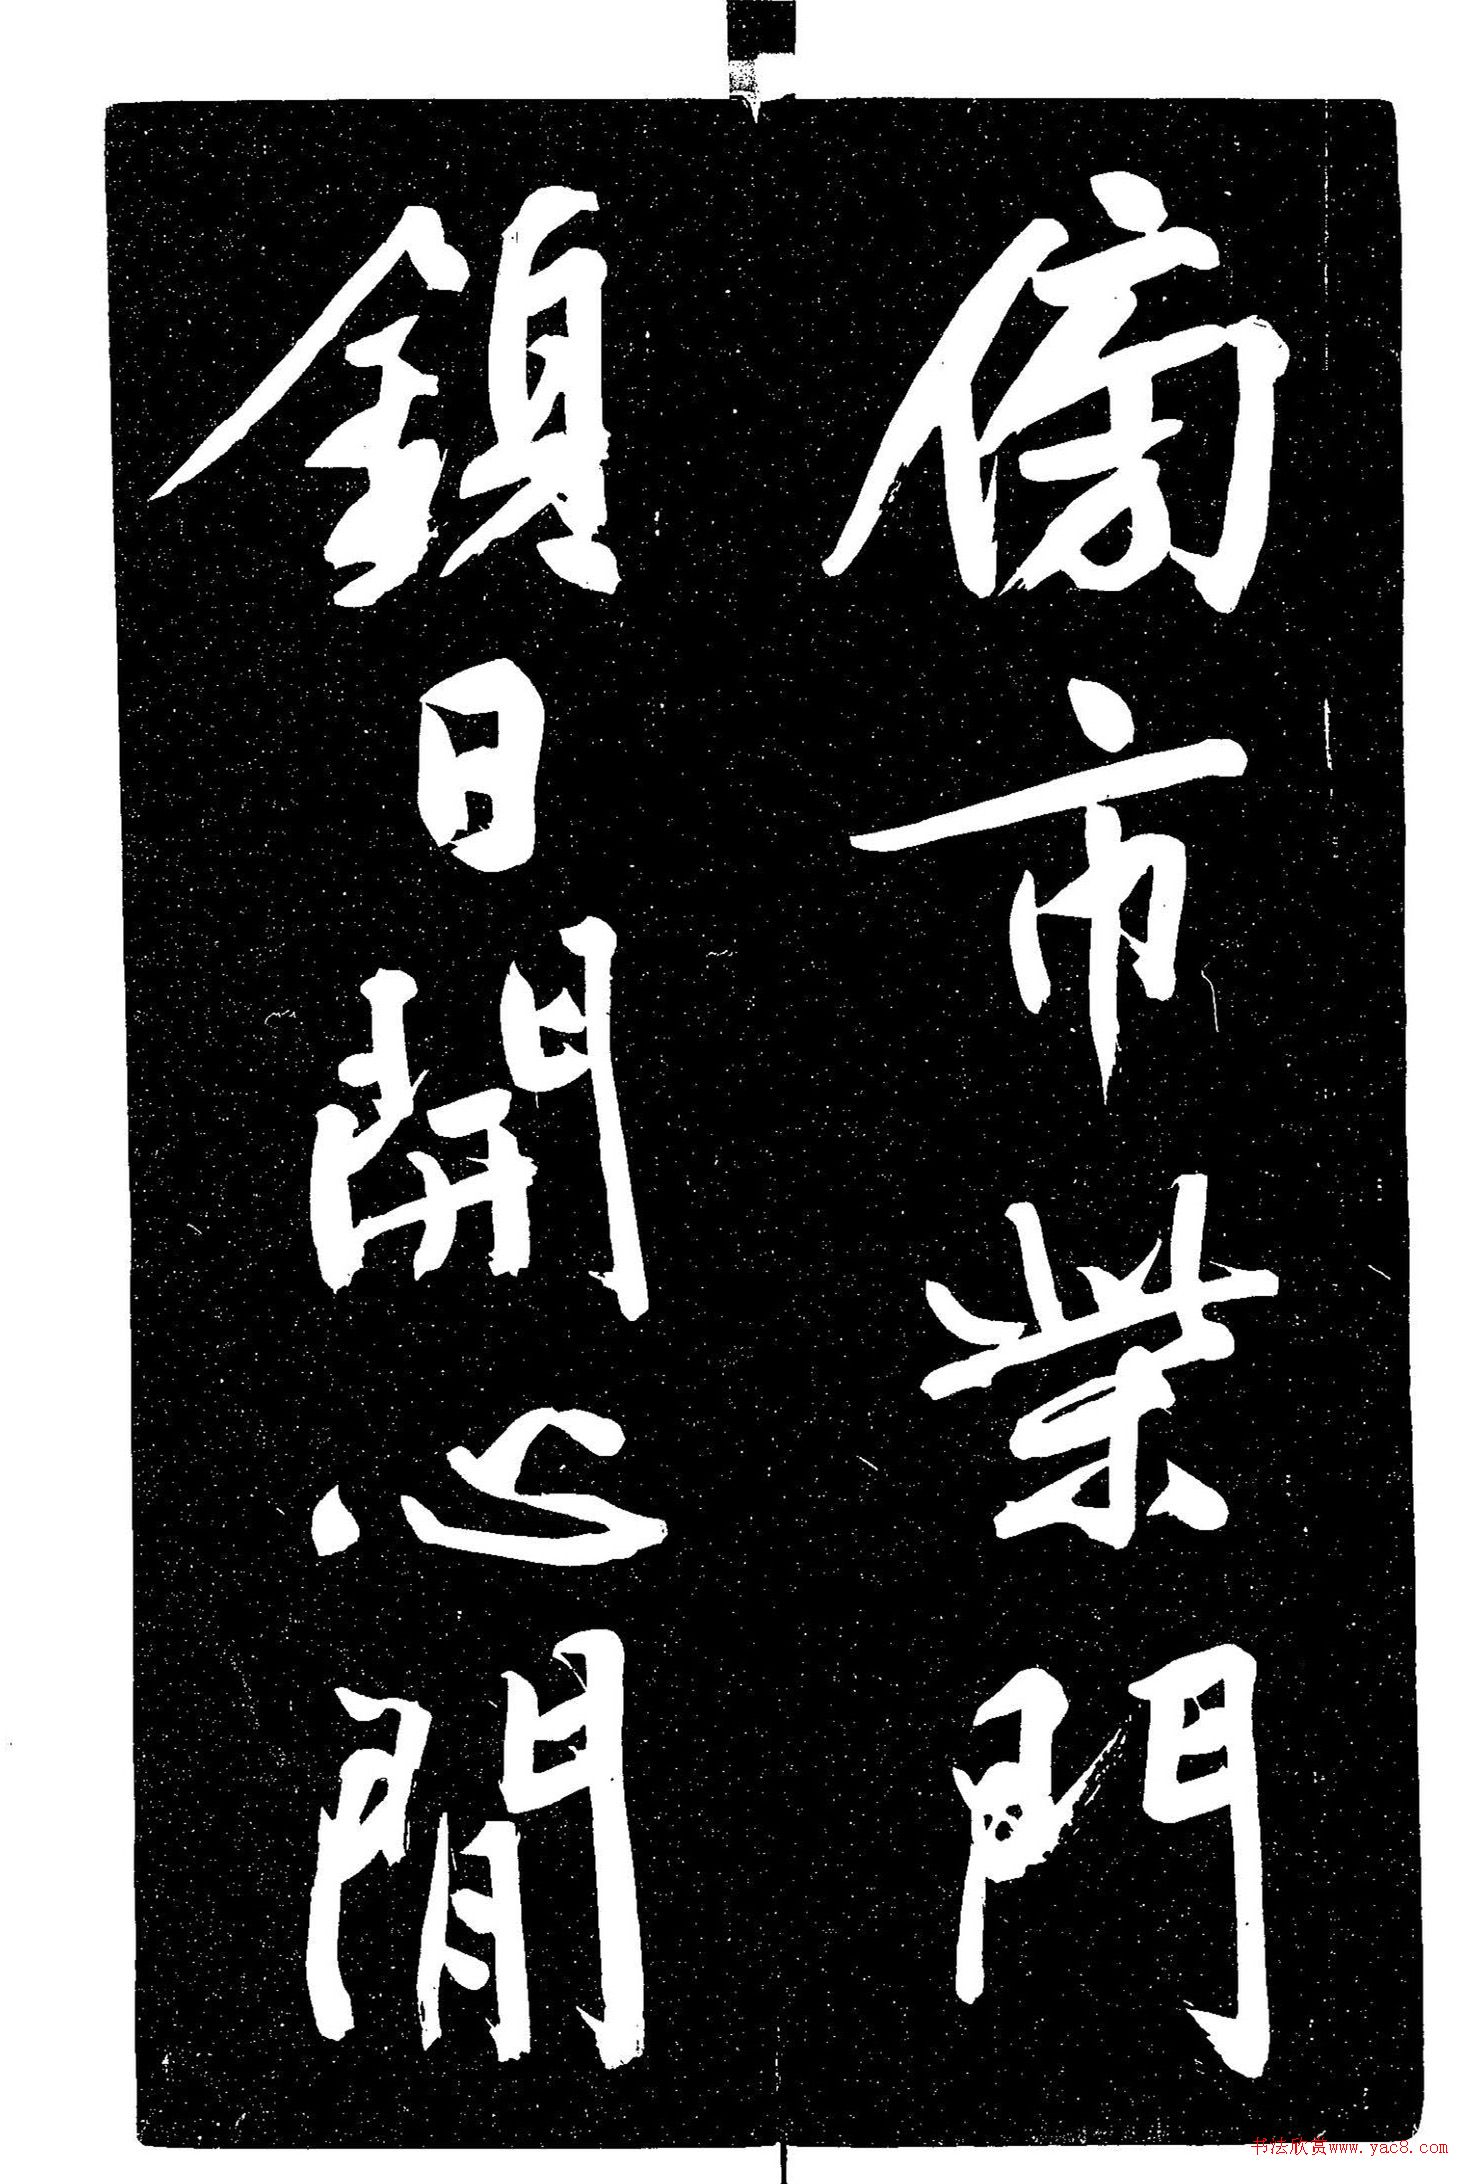 傍市柴門
鎮日開心閒
书法欣赏www.yac8.com